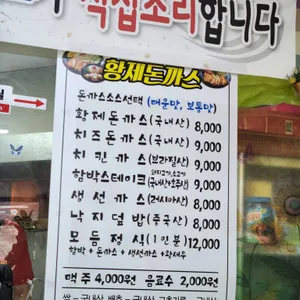 직접조리합니다
황제돈까스
돈까스소스선택 (매운맛, 보통맛)
황제돈까스(국내산) 8,000
치즈돈까스(국내산) 9,000
치킨까스(브라질산) 9,000
함박스테이크(돼지고기,소고기 국내산+호주산) 9,000
생선까스(러시아산) 8,000
낙지덮밥(중국산) 8,000
모듬정식(1인분) 12,000
함박+돈까스+생선까스+왕새우
맥주 4,000원 음료수 2,000원